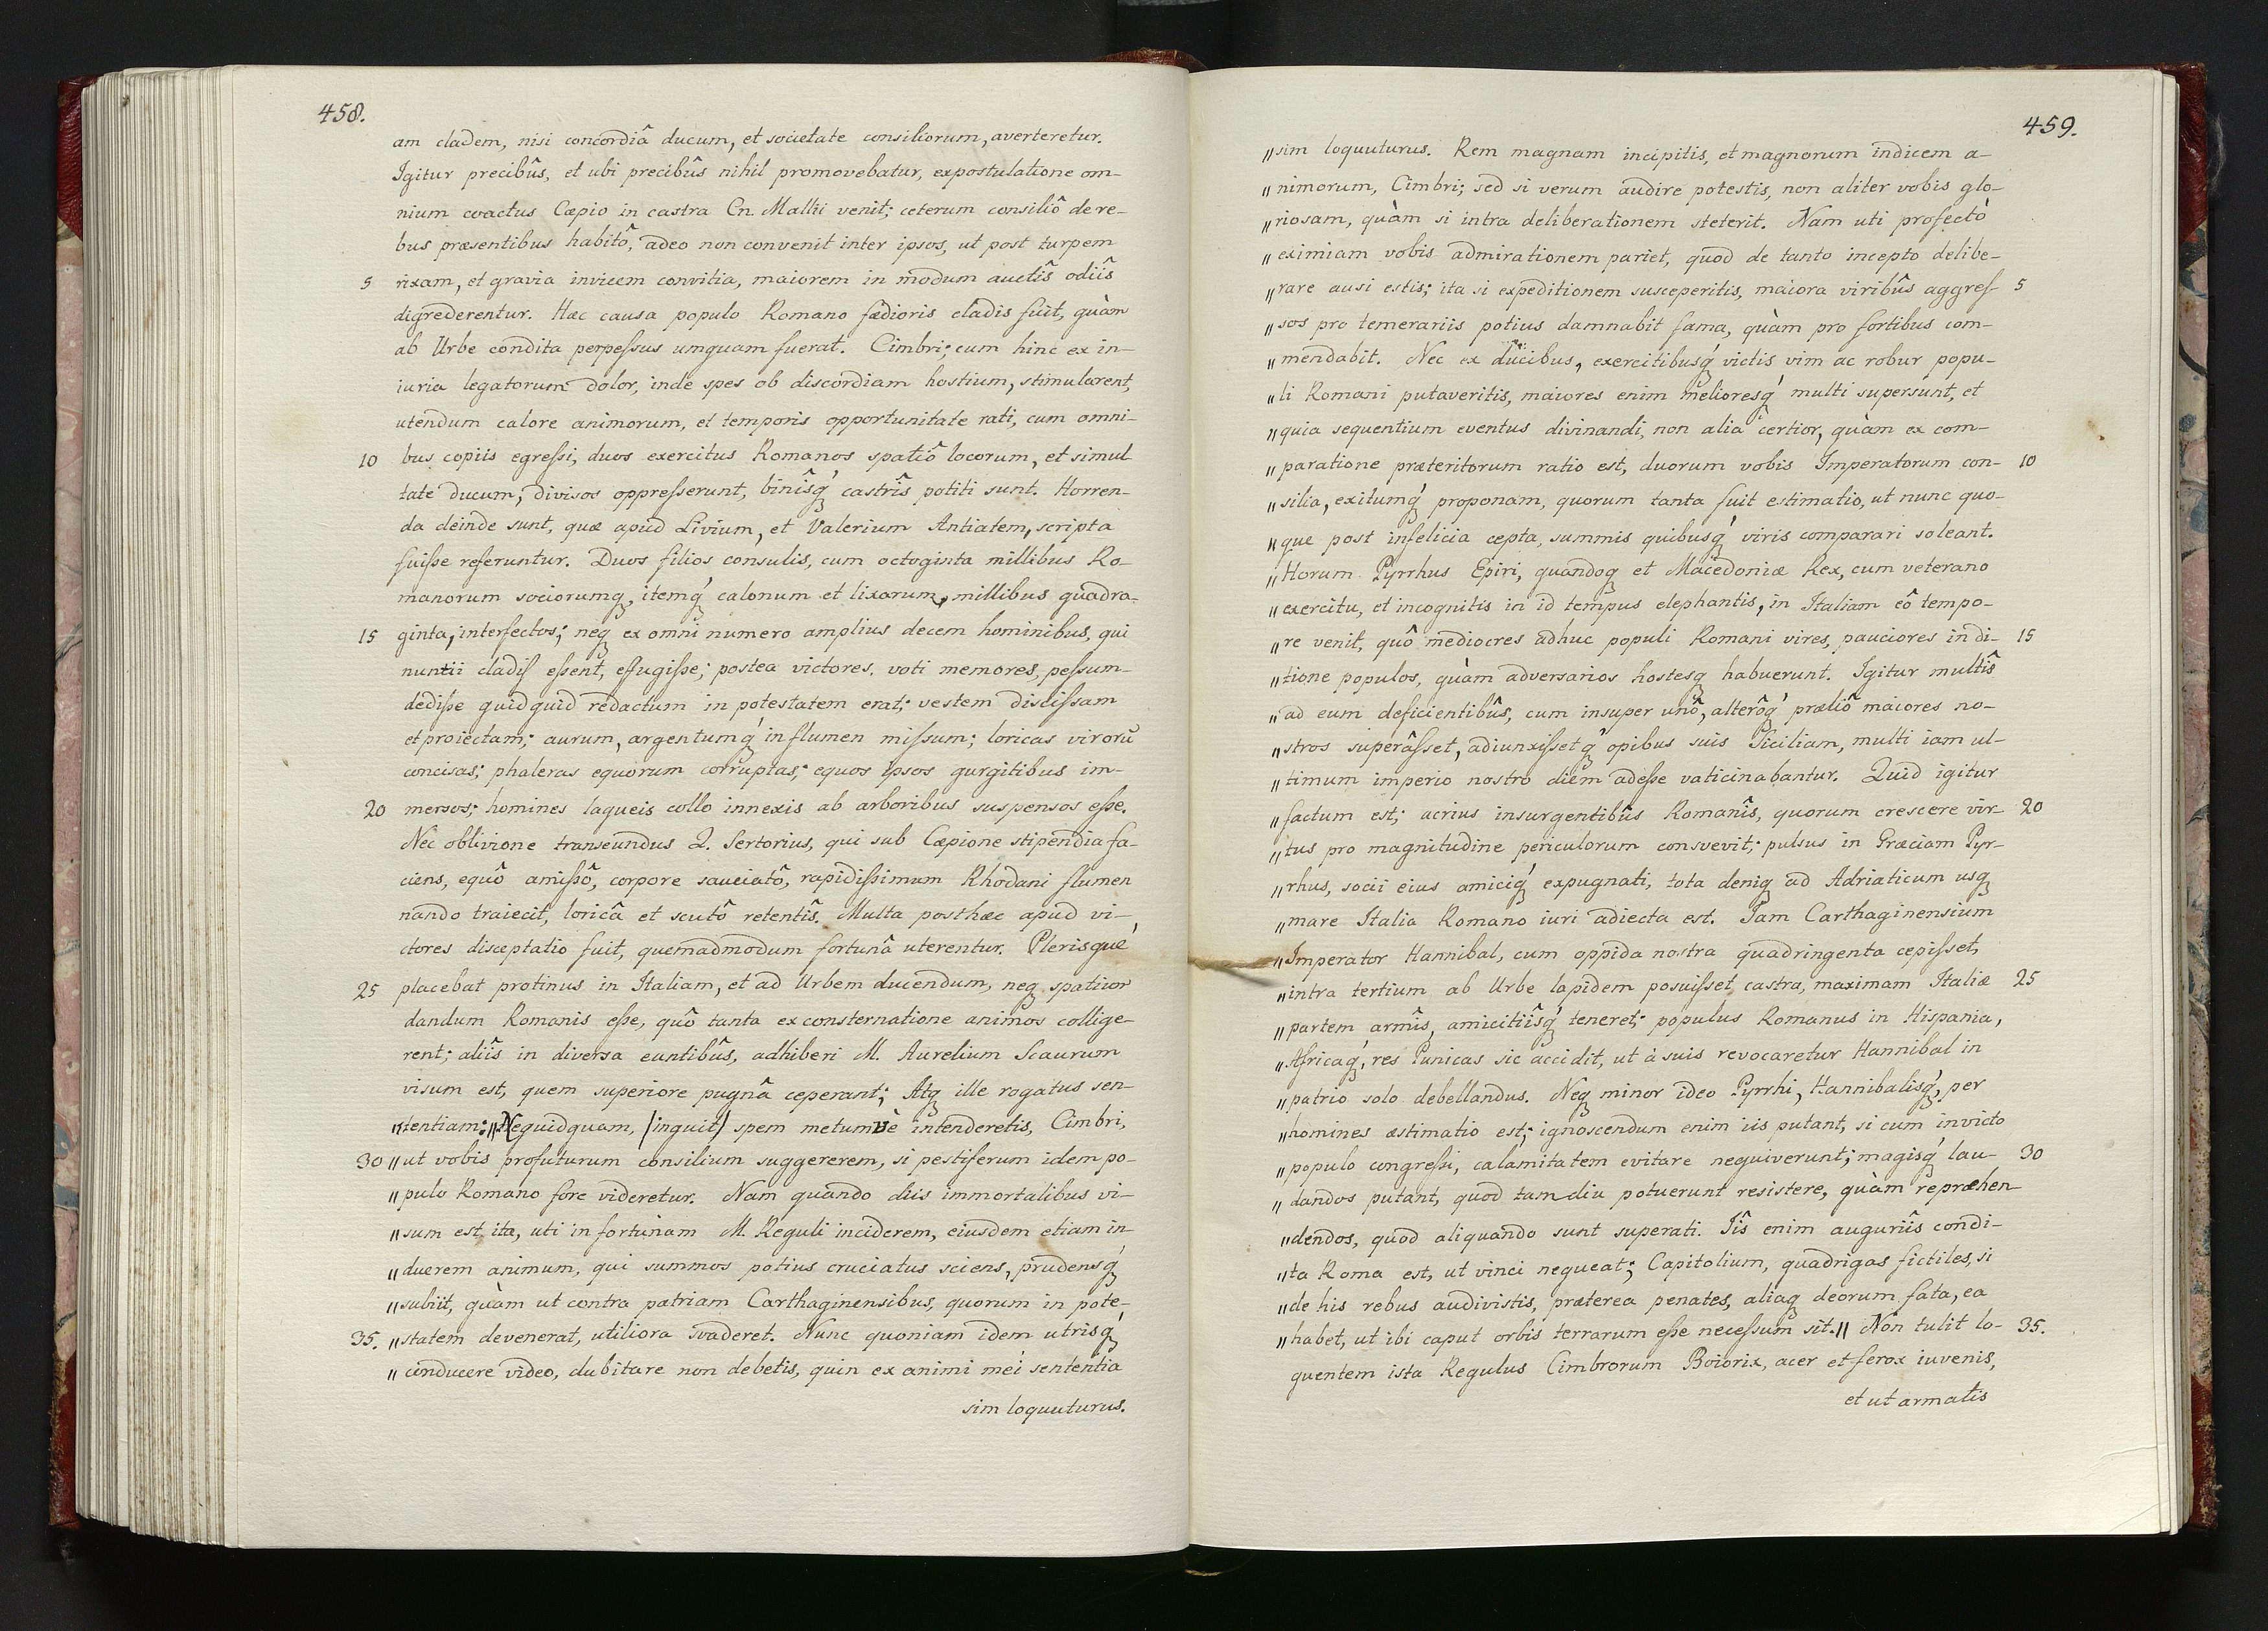 458.
am cladem, nisi concordiâ ducum, et societate consiliorum, averteretur.
Igitur precibûs, et ubi precibûs nihil promovebatur, expostulatione om-
nium coactus Cæpio in castra Cn. Mallii venit; ceterum consiliô de re-
bus præsentibus habitô, adeo non convenit inter ipsos, ut post turpem
5 rixam, et gravia invicem convitia, maiorem in modum auctîs odiîs
digrederentur. Hæc causa populo Romano fædioris cladis fuit, quàm
ab Urbe condita perpeſsus umquam fuerat. Cimbri; cum hinc ex in-
iuria legatorum dolor, inde spes ob discordiam hostium, stimularent,
utendum calore animorum, et temporis opportunitate rati, cum omni-
10 bus copiis egreſsi, duos exercitus Romanos spatiô locorum, et simul
tate ducum, divisos oppreſserunt, binîsq́ castrîs potiti sunt. Horren-
da deinde sunt, quæ apud Livium, et Valerium Antiatem, scripta
fuiſse referuntur. Duos filios consulis, cum octoginta millibus Ro-
manorum sociorumq, itemq́ calonum et lixarum, millibus quadra-
15 ginta, interfectos; neq ex omni numero amplius decem hominibus, qui
nuntii cladiſ eſsent, effugiſse; postea victores, voti memores, peſsum-
dediſse quidquid redactum in potestatem erat; vestem disciſsam
et proiectam; aurum, argentumq́ in flumen miſsum; loricas virorũ
concisas; phaleras equorum corruptas; equos ipsos gurgitibus im-
20 mersos; homines laqueis collo innexis ab arboribus suspensos eſse.
Nec oblivione transeundus Q. Sertorius, qui sub Cæpione stipendia fa-
ciens, equô amiſsô, corpore sauciatô, rapidiſsimum Rhodani flumen
nando traiecit, loricâ et scutô retentîs. Multa posthæc apud vi-
ctores disceptatio fuit, quemadmodum fortunâ uterentur. Plerisqué
25 placebat protinus in Italiam, et ad Urbem ducendum, neq spatium
dandum Romanis eſse, quô tanta ex consternatione animos collige-
rent; aliîs in diversa euntibûs, adhiberi M. Aurelium Scaurum
visum est, quem superiore pugnâ ceperant; Atq ille rogatus sen-
tentiam: „Nequidquam, /inquit/ spem metumvè intenderetis, Cimbri,
30 „ut vobis profuturum consilium suggererem, si pestiferum idem po-
„pulo Romano fore videretur. Nam quando diis immortalibus vi-
„sum est, ita, uti in fortunam M. Reguli inciderem, eiusdem etiam in-
„duerem animum, qui summos potius cruciatus sciens, prudensq́
„subiit, quàm ut contra patriam Carthaginensibus, quorum in pote-
35. „statem devenerat, utiliora svaderet. Nunc quoniam idem utrisq́
„conducere video, dubitare non debetis, quin ex animi mei sententia
sim loquuturus.
459.
„sim loquuturus. Rem magnam incipitis, et magnorum indicem a-
„nimorum, Cimbri; sed si verum audire potestis, non aliter vobis glo-
„riosam, quàm si intra deliberationem steterit. Nam uti profectò
„eximiam vobis admirationem pariet, quod de tanto incepto delibe-
„rare ausi estis; ita si expeditionem susceperitis, maiora viribûs aggreſ- 5
„sos pro temerariis potius damnabit fama, quàm pro fortibus com-
„mendabit. Nec ex ducibus, exercitibusq́ victis vim ac robur popu-
„li Romani putaveritis, maiores enim melioresq́ multi supersunt, et
„quia sequentium eventus divinandi, non alia certior, quàm ex com-
„paratione præteritorum ratio est, duorum vobis Imperatorum con- 10
„silia, exitumq́ proponam, quorum tanta fuit estimatio, ut nunc quo-
„que post infelicia cepta, summis quibusq́ viris comparari soleant.
„Horum Pyrrhus Epiri, quandoq et Macedoniæ Rex, cum veterano
„exercitu, et incognitis in id tempus elephantis, in Italiam eô tempo-
„re venit, quô mediocres adhuc populi Romani vires, pauciores in di- 15
„tione populos, quàm adversarios hostesq habuerunt. Igitur multîs
„ad eum deficientibûs, cum insuper unô, alterôq́ præliô maiores no-
„stros superâſset, adiunxiſsetq́ opibus suis Siciliam, multi iam ul-
„timum imperio nostro diem adeſse vaticinabantur. Quid igitur
„factum est; acrius insurgentibûs Romanîs, quorum crescere vir- 20
„tus pro magnitudine periculorum consvevit; pulsus in Græciam Pyr-
„rhus, socii eius amiciq́ expugnati, tota deniq ad Adriaticum usq
„mare Italia Romano iuri adiecta est. Iam Carthaginensium
„Imperator Hannibal, cum oppida nostra quadringenta cepiſset,
„intra tertium ab Urbe lapidem posuiſset castra, maximam Italiæ 25
„partem armîs, amicitiîsq́ teneret; populus Romanus in Hispania,
„Africaq́, res Punicas sic accidit, ut à suis revocaretur Hannibal in
„patrio solo debellandus. Neq minor ideo Pyrrhi, Hannibalisq́, per
„homines æstimatio est; ignoscendum enim iis putant, si cum invicto
„populo congreſsi, calamitatem evitare nequiverunt; magisq́ lau- 30
„dandos putant, quod tam diu potuerunt resistere, quàm repræhen
„dendos, quod aliquando sunt superati. Iîs enim auguriîs condi-
„ta Roma est, ut vinci nequeat; Capitolium, quadrigas fictiles, si
„de his rebus audivistis, præterea penates, aliaq deorum fata, ea
„habet, ut ibi caput orbis terrarum eſse neceſsum sit.„ Non tulit lo- 35.
quentem ista Regulus Cimbrorum Boiorix, acer et ferox iuvenis,
et ut armatis